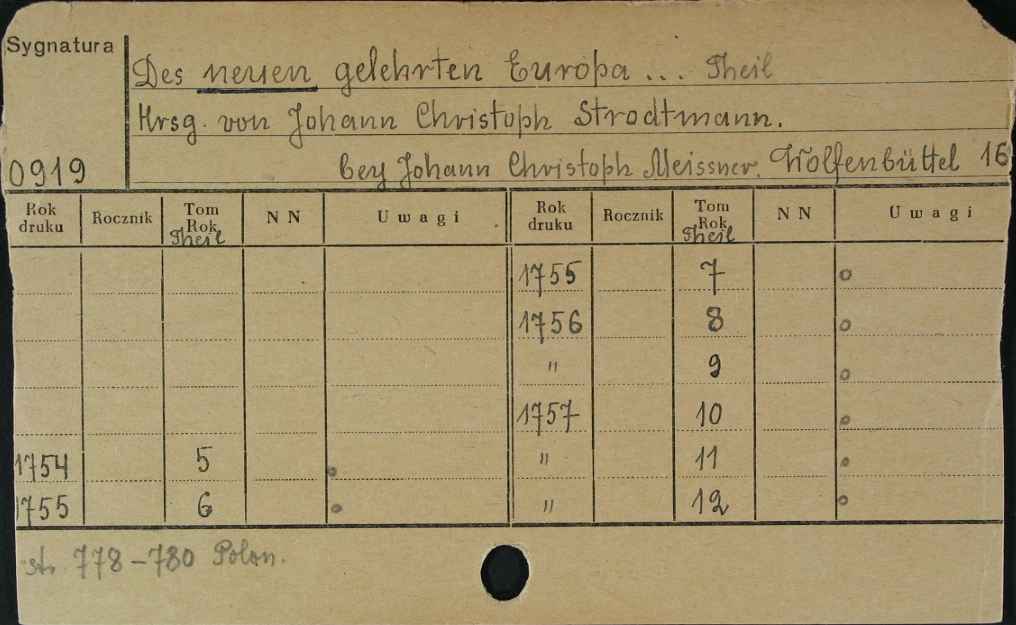 Sygnatura
Des neuen gelehrten Europa ... Theil
Hrsg. von Johann Christoph Strodtmann.
0919 bey Johann Christoph Meissner. Wolfenbüttel 16
Rok druku Rocznik Tom Rok Theil NN Uwagi Rok druku Rocznik Tom Rok Theil NN Uwagi
1755 7 o
1756 8 o
" 9 o
1757 10 o
1754 5 o " 11 o
1755 6 o " 12 o
str. 778-780 Polon.